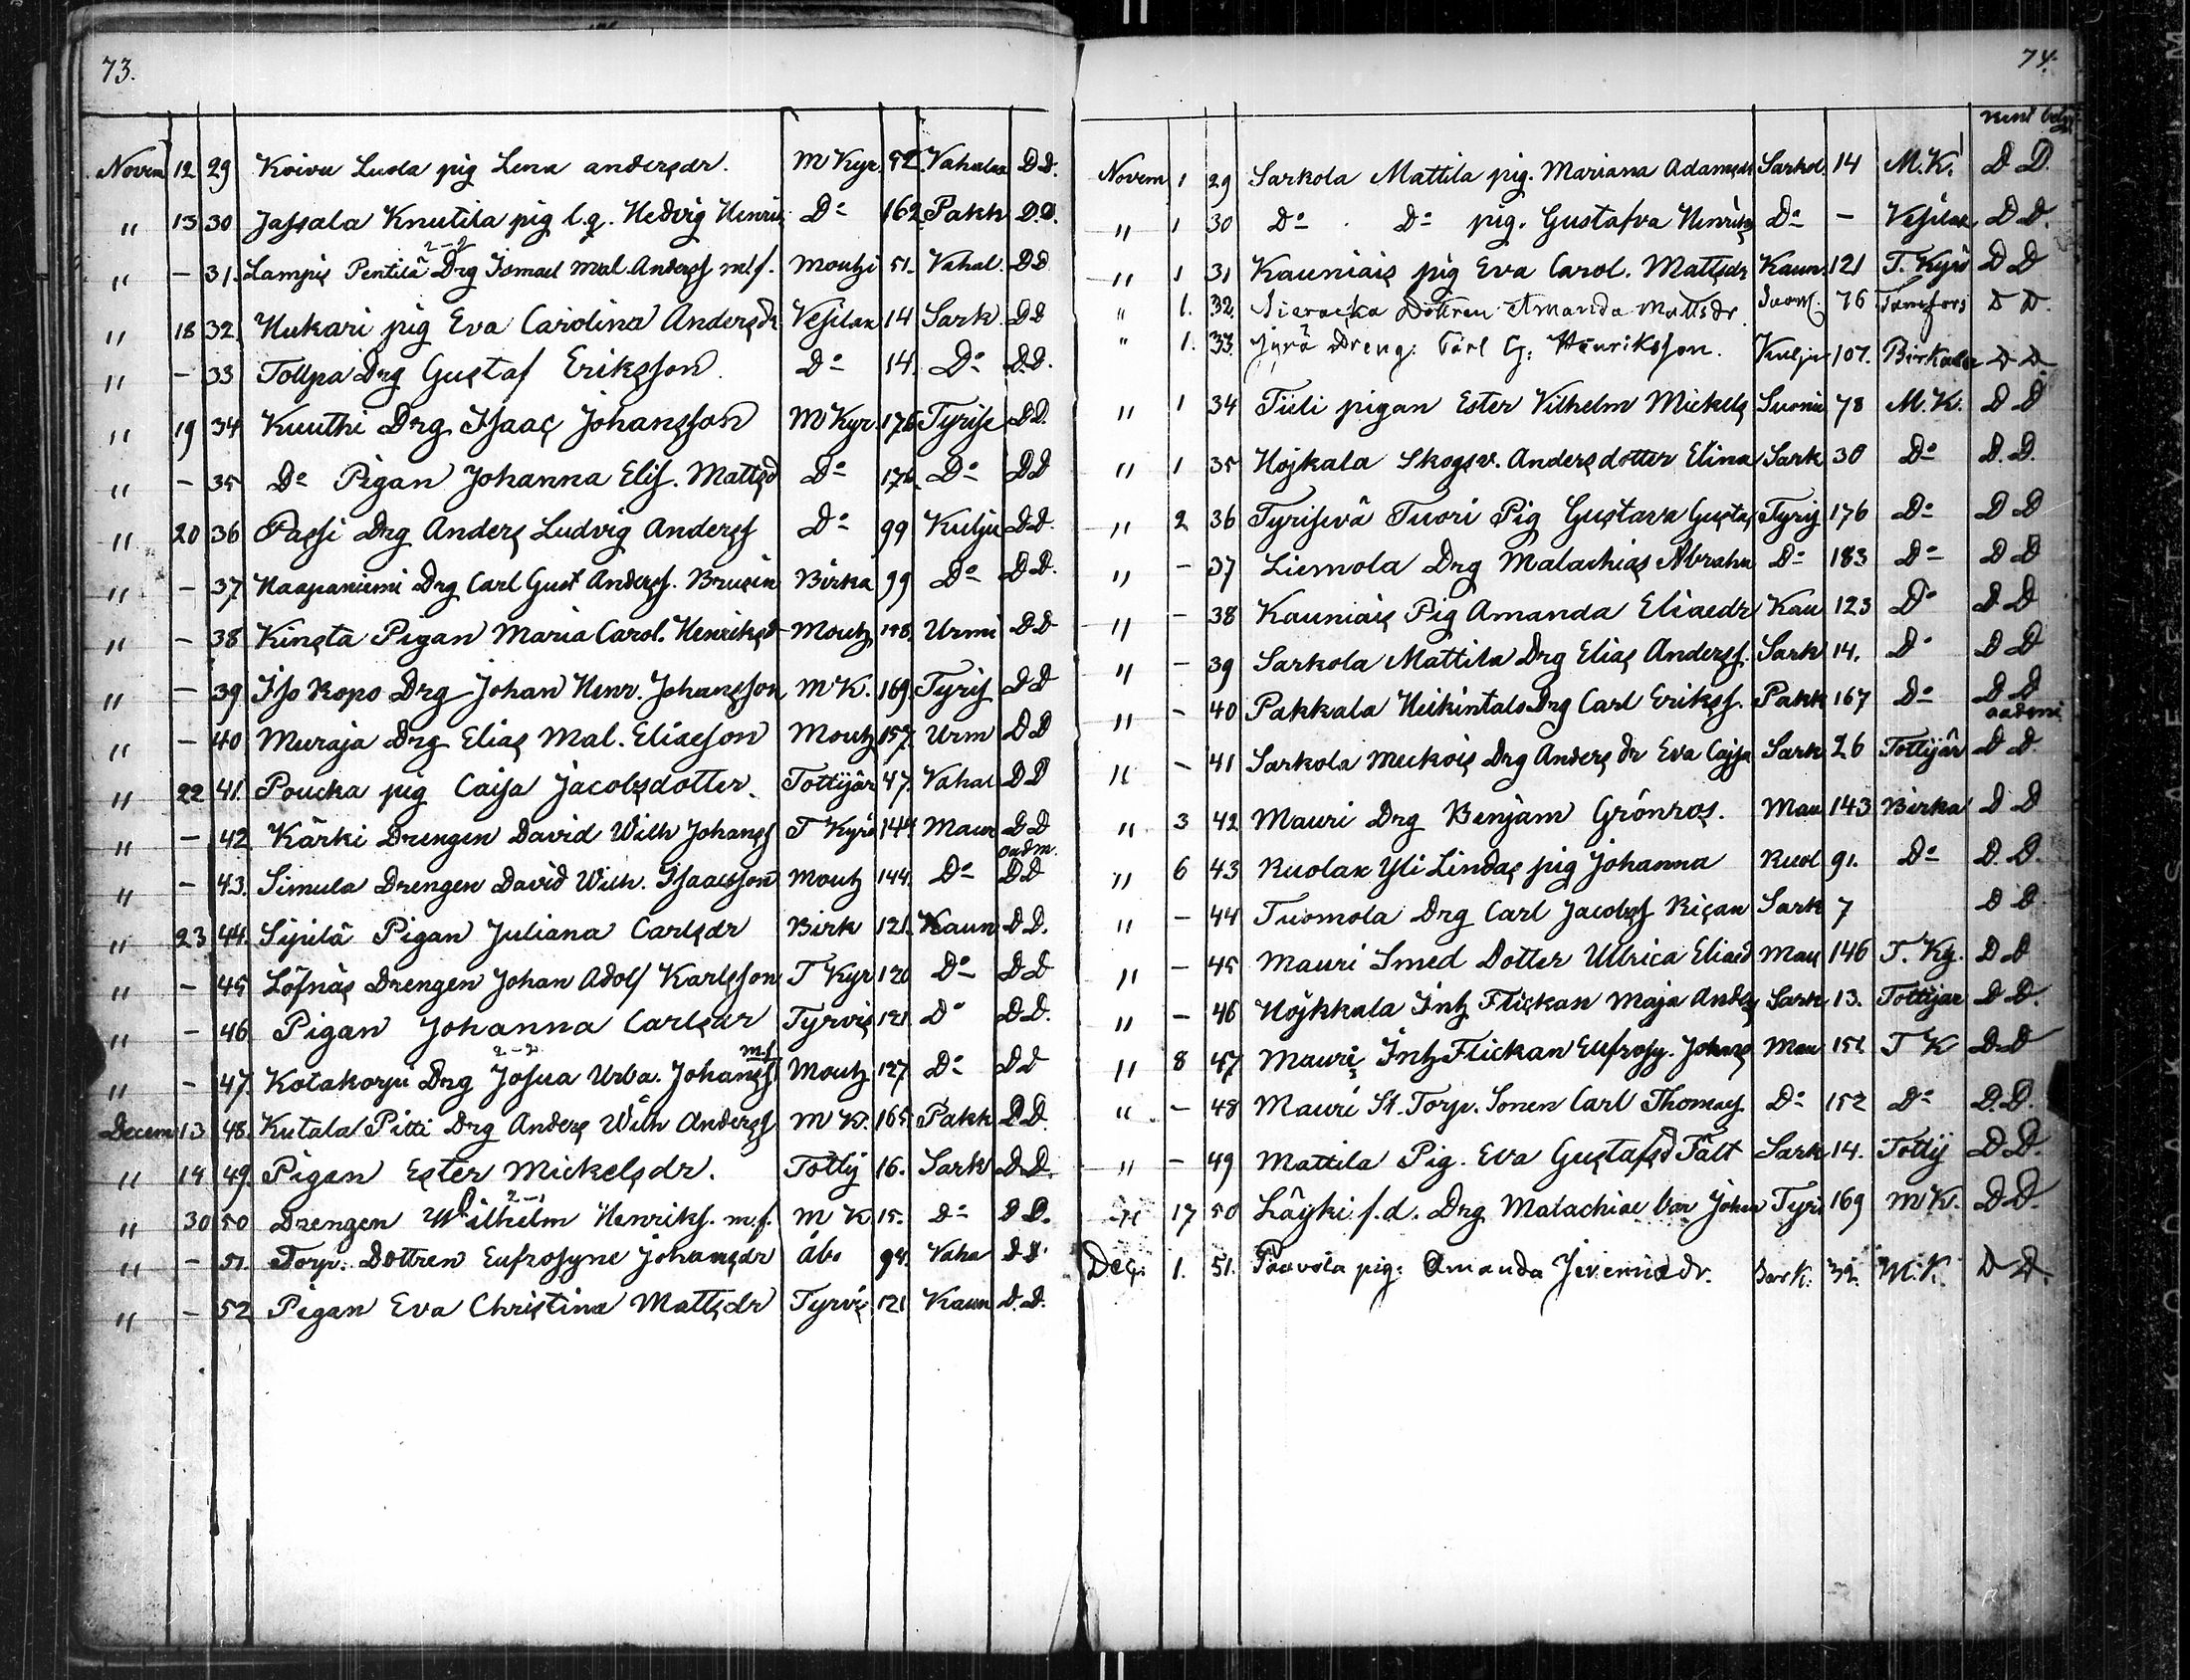 73.
Novem 12 29 Koivu Luola pig Lena andersdr. M Kyr. 52. Vahalax DD.
" 13 30 Jassala Knutila pig l.q. Hedvig Henrics Do 162 Pakk D.D.
2-2
" – 31. Lampis Pentilä Drg Ismael Mal. Anderss m.f. Moutzi 51. Vahal. DD
" 18 32. Hukari pig Eva Carolina Andersdr Vesilax 14 Sark DD
" – 33 Tollpa Drg Gustaf Eriksson Do 14. Do DD.
" 19 34 Kuuthi Drg Isaac Johansson M Kyr. 176 Tyrise DD.
" – 35 Do Pigan Johanna Elis. Mattsd Do 176. Do DD
" 20 36 Passi Drg Anders Ludvig Anderss Do 99 Kulju DD.
" – 37 Haapaniemi Drg Carl Gust Anderss. Brusin Birka 99 Do DD.
" – 38 Kinsta Pigan Maria Carol. Henriksd Moutz 198. Urmi DD
" – 39 Iso Ropo Drg Johan Henr. Johansson M K. 169. Tyris DD
" – 40 Muraja Drg Elias Mal. Eliaeson Moutz 157. Urm DD
" 22 41. Poucka pig Caisa Jacobsdotter. Tottijär 47. Vahal DD
" – 42 Kärki Drengen David Wilh Johanss T Kyrö 144 Maur DD
oadm.
" – 43. Simula Drengen David Wilh. Isaacsson Moutz 144. Do DD
" 23 44. Sipilä Pigan Juliana Carlsdr Birk 121. Kaun DD.
" – 45 Löfnäs Drengen Johan Adolf Karlsson T Kyr 120 Do DD
" – 46 Pigan Johanna Carlsdr Tyrvis 121 Do DD.
2-2 m.f
" – 47. Kotakorpi Drg Josua Urba. Johanss Moutz 127 Do DD
Decem 13 48. Kutala Pitti Drg Anders Wilh Anderss M K. 165 Pakk DD.
" 14 49. Pigan Ester Mickelsdr. Totty 16. Sark DD.
2-1
" 30 50 Drengen Wilhelm Henrikss. m.f. M K 15. Do DD.
" – 51. Torp. Dottren Eufrosyne Johansdr åbo 94. Vaha DD.
" – 52 Pigan Eva Christina Mattsdr Tyrvis 121 Kaun D.D.
74.
Novem 1 29 Sarkola Mattila pig. Mariana Adamsdr Sarkol. 14 M.K. DD.
" 1 30 Do Do pig. Gustafva Henriks Do – Vesilax DD.
" 1 31 Kauniais pig Eva Carol. Mattsdr Kaun. 121 T. Kyrö DD
" 1. 32. Dottren Amanda Mattsdr. Suom. 76 Tamfors DD.
" 1. 33. Jyrä Dreng: Carl G: Henriksson. Kulju 107. Birkala DD.
" 1 34 Tiili pigan Ester Vilhelm Mickels Suoni 78 M.K. DD
" 1 35 Höjkala Skogsv. Andersdotter Elina Sark 30 Do D.D.
" 2 36 Tyrisevä Tuori Pig Gustava Gustaf Tyris 176 Do DD
" – 37 Liemola Drg Malachias Abraha Do 183 Do DD
" – 38 Kauniais Pig Amanda Eliaedr Kau 123 Do DD
" – 39 Sarkola Mattila Drg Elias Anderss. Sark 14. Do DD
" – 40 Pakkala Heikintalo Drg Carl Erikss. Pakk 167 Do DD
oadmi
" – 41 Sarkola Meckois Drg Anders dr Eva Cajsa Sark 26 Tottijär DD.
" 3 42 Mauri Drg Benjam Grönros. Mau 143 Birka DD
" 6 43 Kuolax Yli Lindas pig Johanna Kuol 91. Do D.D.
" – 44 Tuomola Drg Carl Jacobss Kisan Sark 7 DD
" – 45 Mauri Smed Dotter Ulrica Eliaed Mau 146 T. Ky. DD
" – 46 Höjkkala Intz Flickan Maja Anders Sark 13. Tottijar DD.
" 8 47 Mauri Intz Flickan Eufrosy. Johans Mau 152 T K DD
" – 48 Mauri St. Torp. Sonen Carl Thomass Do 152 Do D.D.
" – 49 Mattila Pig. Eva Gustafsd Fält Sark 14. Totty DD.
" 17 50 Läyki f.d. Drg Malachias Johan Tyri 169 M K. DD.
Dec. 1. 51. Paavola pig: Amanda Jeremiadr. Sark. 32. M.K. DD.